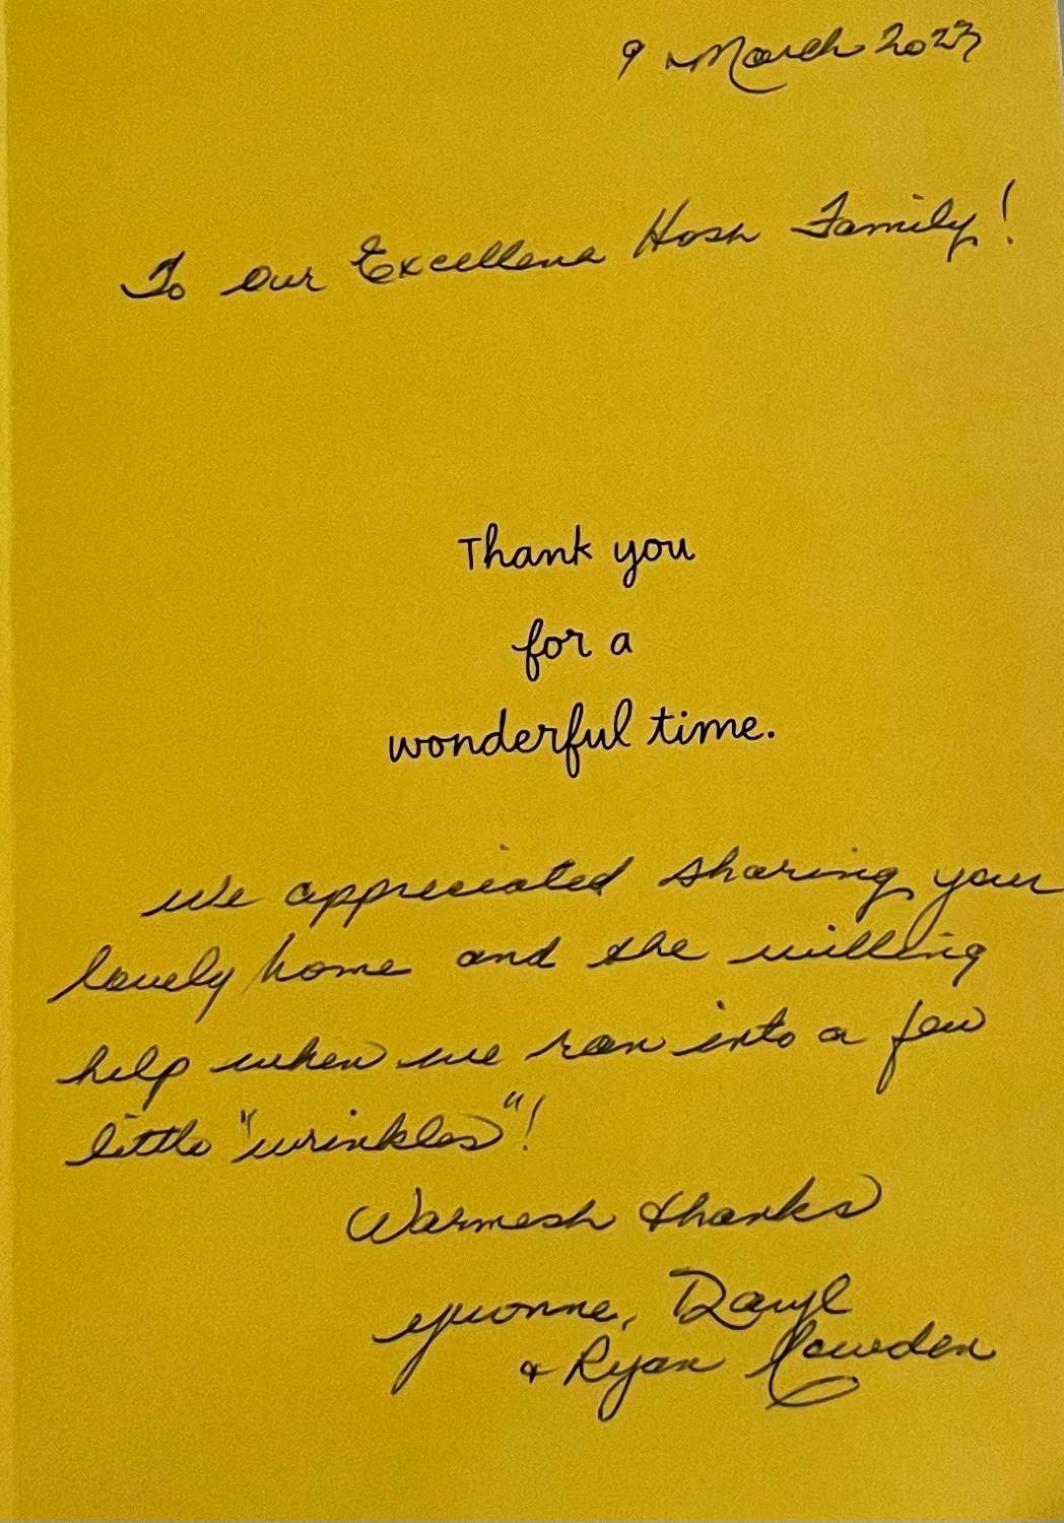 9 March 2023
To Our Excellent Host Family!
Thank you
for a
wonderful time.
We appreciated sharing your
lovely home and the willing
help when we ran into a few
little "wrinkles"!
Warmest thanks
Yvonne, Daryl
& Ryan Cowden